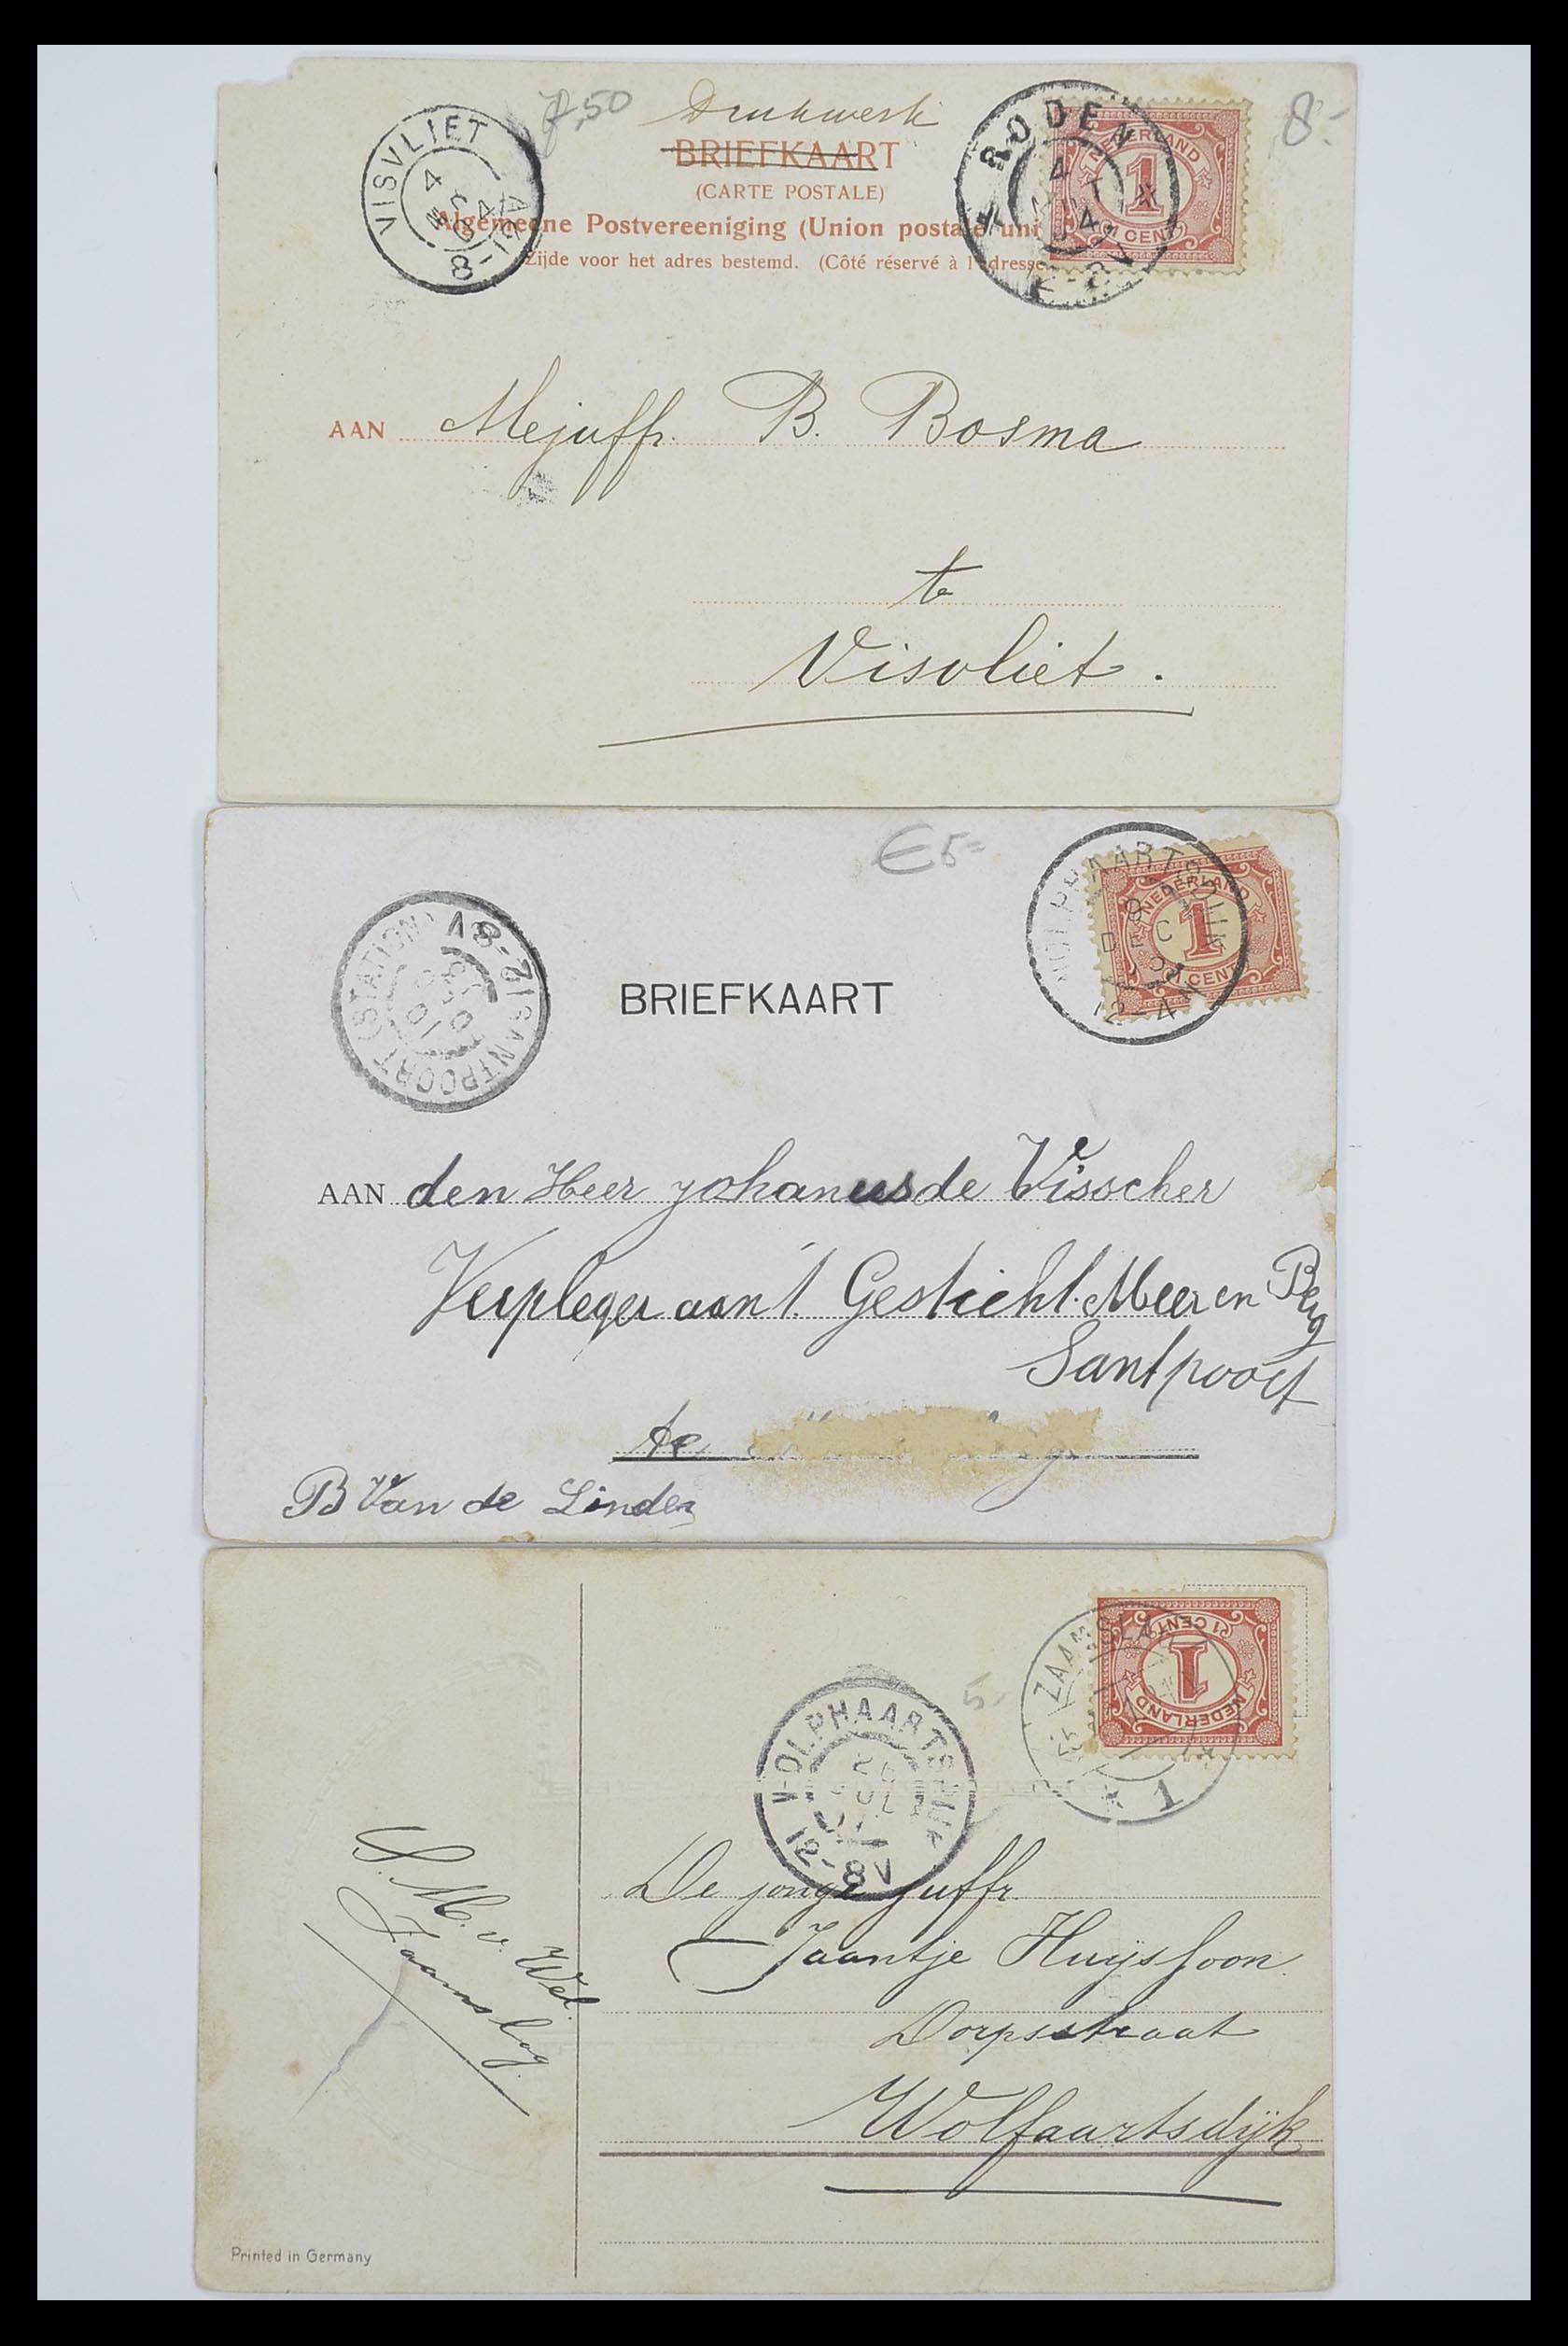 7,50
Drukwerk
8.-
VISVLIET
4
8-
RODEN
4
NEDERLAND
1
1 CENT
BRIEFKAART
(CARTE POSTALE)
Algemeene Postvereeniging (Union postale uni
Zijde voor het adres bestemd. (Côté réservé à l'adresse
AAN Mejuffr. B. Bosma
te
Visvliet.
€5=
WOLPHAARTSDIJK
8
DEC
12-4N
NEDERLAND
1
1 CENT
SANTPOORT (STATION)
12-8V
BRIEFKAART
AAN den Heer Johannes de Visscher
Verpleger aan 't Gesticht Meer en Berg
Santpoort
te
B Van de Linden
ZAAMSLAG
1
NEDERLAND
1
1 CENT
5.-
WOLPHAARTSDIJK
12-8V
De jonge juffr.
Jaantje Huijssoon.
Dorpsstraat
Wolfaartsdijk
S. M. v. Wel.
Zaamslag.
Printed in Germany